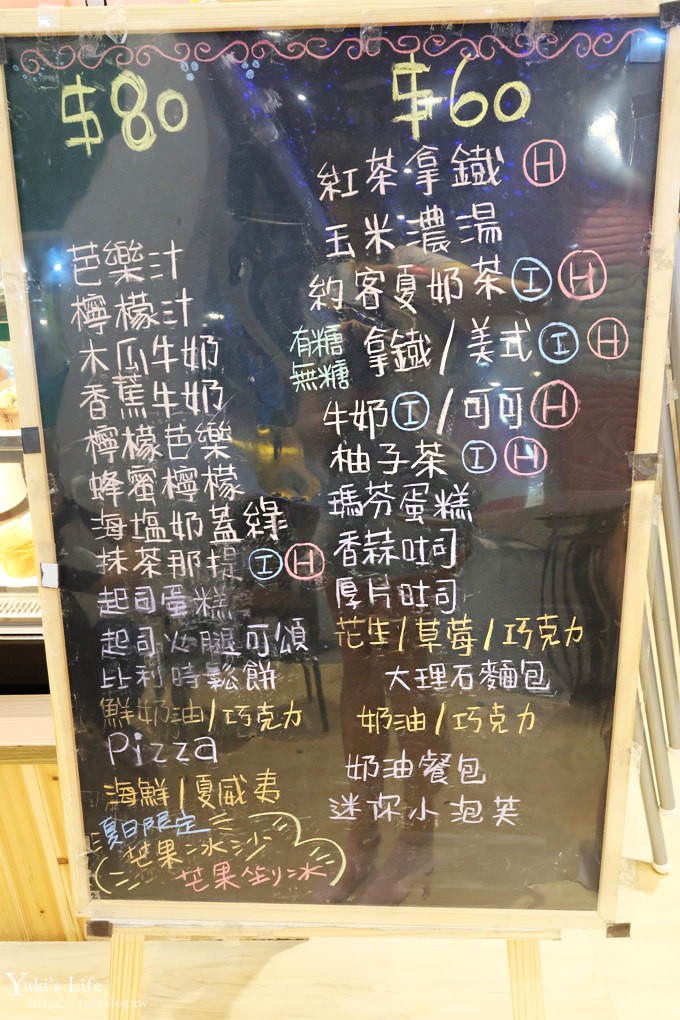 $80
芭樂汁
檸檬汁
木瓜牛奶
香蕉牛奶
檸檬芭樂
蜂蜜檸檬
海塩奶蓋綠
抹茶那提 I H
起司蛋糕
起司火腿可頌
比利時鬆餅
鮮奶油/巧克力
Pizza
海鮮/夏威夷
夏日限定
芒果冰沙
芒果剉冰
$60
紅茶拿鐵 H
玉米濃湯
約客夏奶茶 I H
有糖 無糖 拿鐵/美式 I H
牛奶 I /可可 H
柚子茶 I H
瑪芬蛋糕
香蒜吐司
厚片吐司
花生/草莓/巧克力
大理石麵包
奶油/巧克力
奶油餐包
迷你小泡芙
Yuki's Life